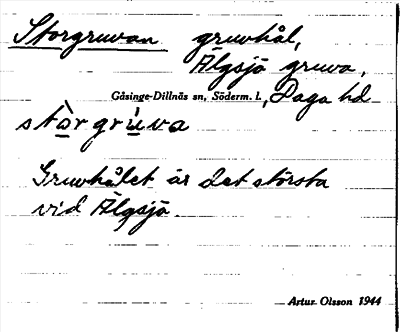 Storgruvan gruvhål,
Älgsjö gruva,
Gåsinge-Dillnäs sn, Söderm. l., Daga hd
stòrgrúva
Gruvhålet är det största
vid Älgsjö.
Artur Olsson 1944